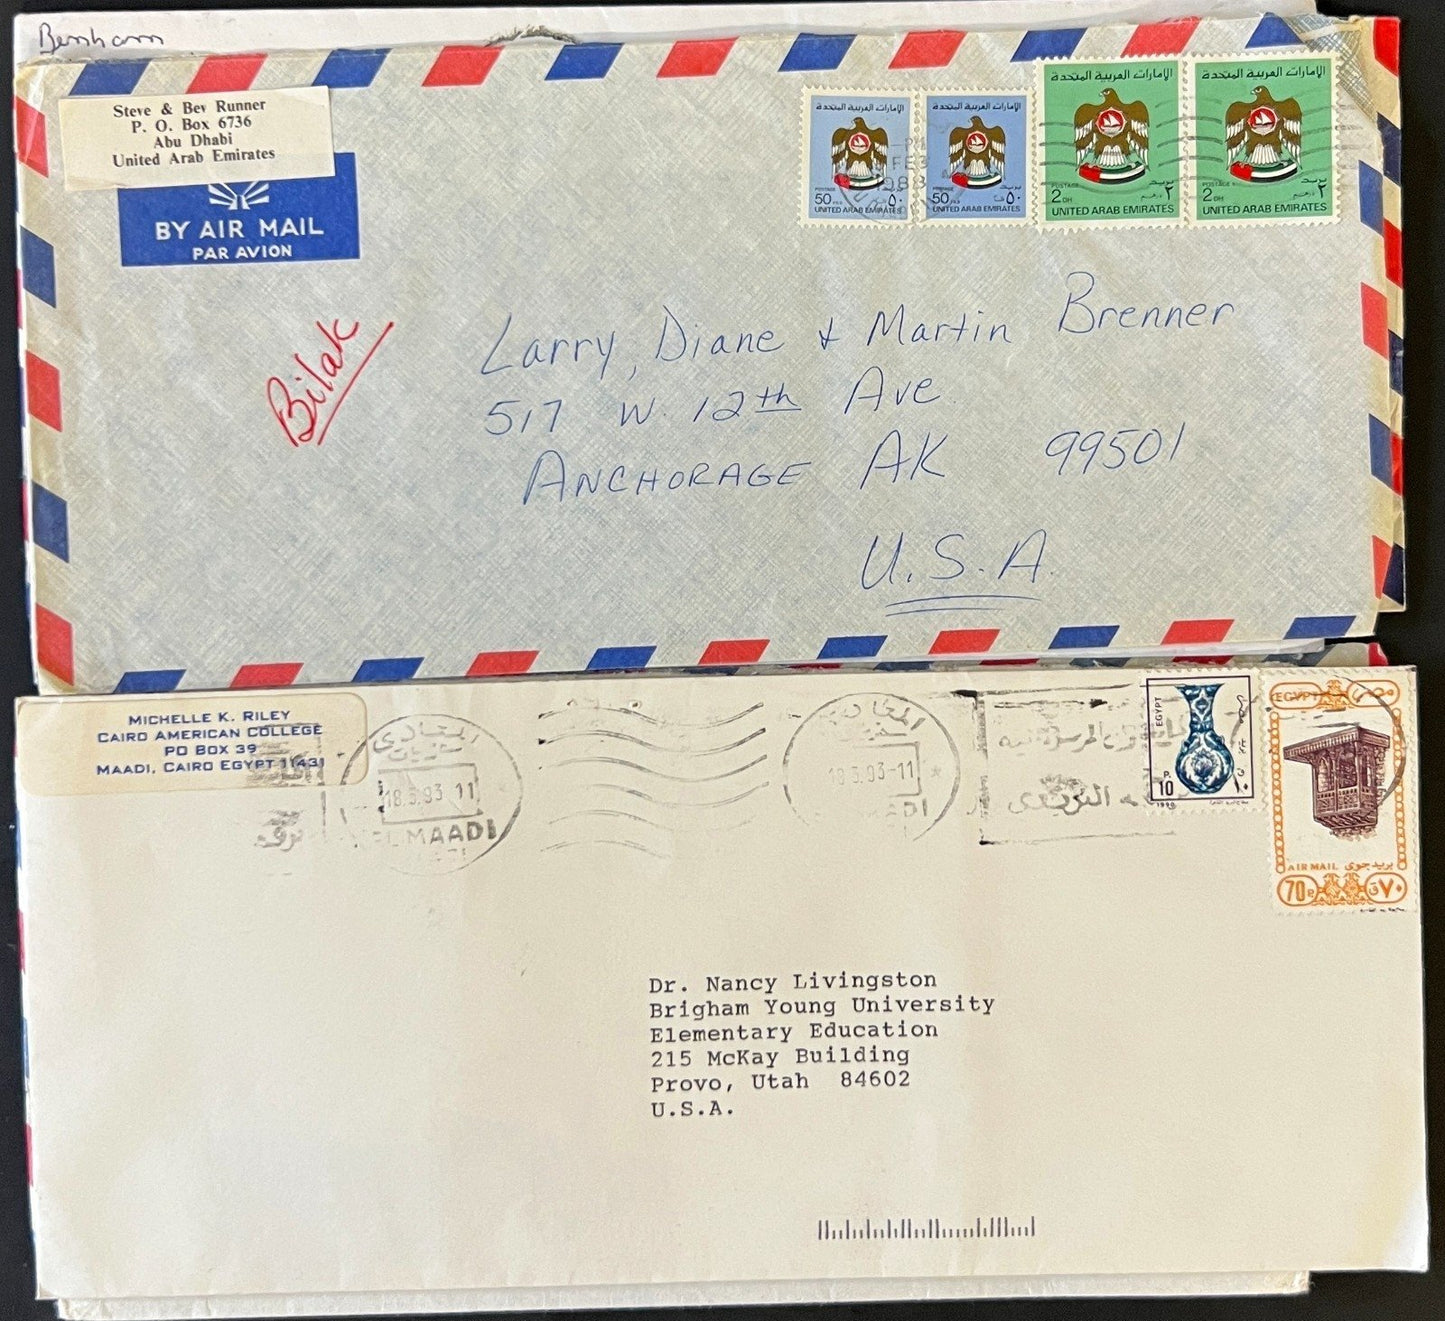 Benham
Steve & Bev Runner
P. O. Box 6736
Abu Dhabi
United Arab Emirates
BY AIR MAIL
PAR AVION
الإمارات العربية المتحدة
POSTAGE
50 FILS ٥٠ فلسا
UNITED ARAB EMIRATES
الإمارات العربية المتحدة
50 FILS ٥٠ فلسا
UNITED ARAB EMIRATES
الإمارات العربية المتحدة
POSTAGE بريد
2 DH ٢ درهم
UNITED ARAB EMIRATES
الإمارات العربية المتحدة
POSTAGE بريد
2 DH ٢ درهم
UNITED ARAB EMIRATES
PM
FEB
1983
Bilak
Larry, Diane & Martin Brenner
517 W. 12th Ave
ANCHORAGE AK 99501
U.S.A.
MICHELLE K. RILEY
CAIRO AMERICAN COLLEGE
PO BOX 39
MAADI, CAIRO EGYPT 11431
المعادى
18.3.93 11
EL MAADI
المعادى
18.3.93-11
MAADI
EGYPT
مصر
P.
10
١٠
1990
EGYPT مصر
AIR MAIL بريد جوى
70 P ٧٠ ق
Dr. Nancy Livingston
Brigham Young University
Elementary Education
215 McKay Building
Provo, Utah 84602
U.S.A.